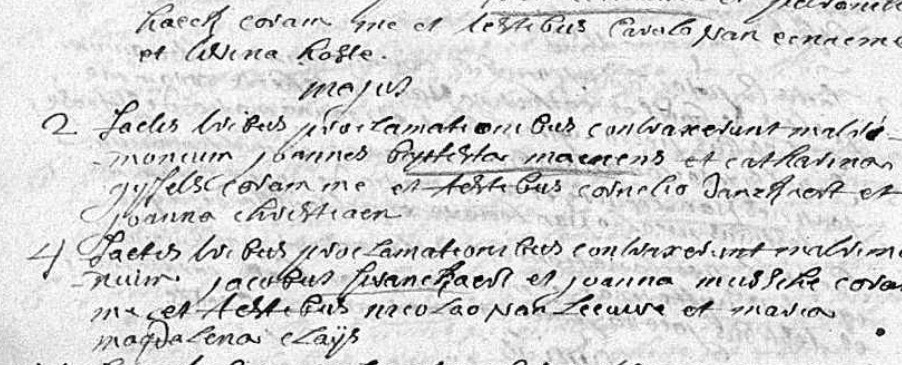 haeck coram me et testibus Carolo van eename
et livina hoste.
majus
2 factis tribus proclamationibus contraxerunt matri-
-monium joannes baptista maenens et catharina
gyssels coram me et testibus cornelio et
joanna christiaen
4 factis tribus proclamationibus contraxerunt matrimo
-nium jacobus et joanna mussche coram
me et testibus nicolao van Leeuwe et maria
magdalena claÿs